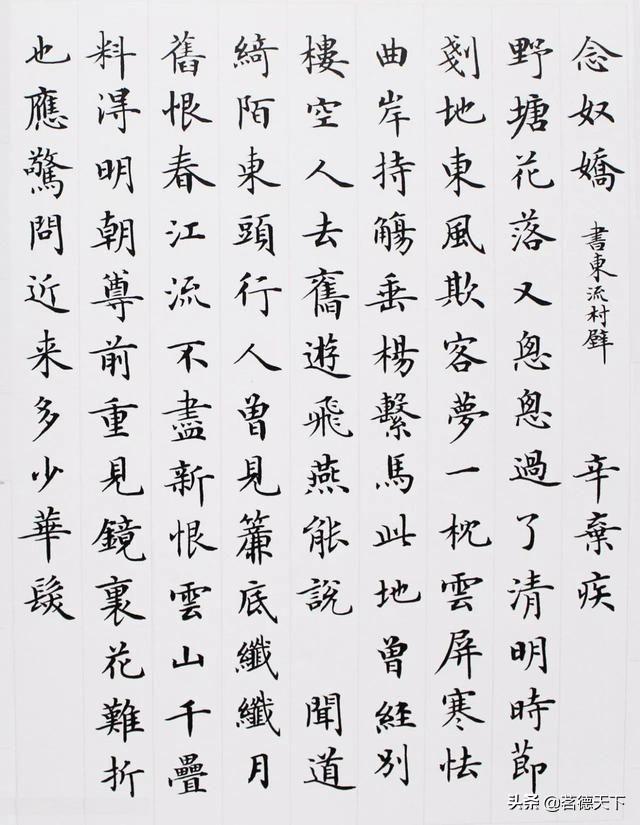 念奴嬌 書東流村壁 辛棄疾
野塘花落又悤悤過了清明時節
剗地東風欺客夢一枕雲屏寒怯
曲岸持觴垂楊繫馬此地曾經別
樓空人去舊遊飛燕能說 聞道
綺陌東頭行人曾見簾底纖纖月
舊恨春江流不盡新恨雲山千疊
料得明朝尊前重見鏡裏花難折
也應驚問近来多少華髮
头条 @茗德天下